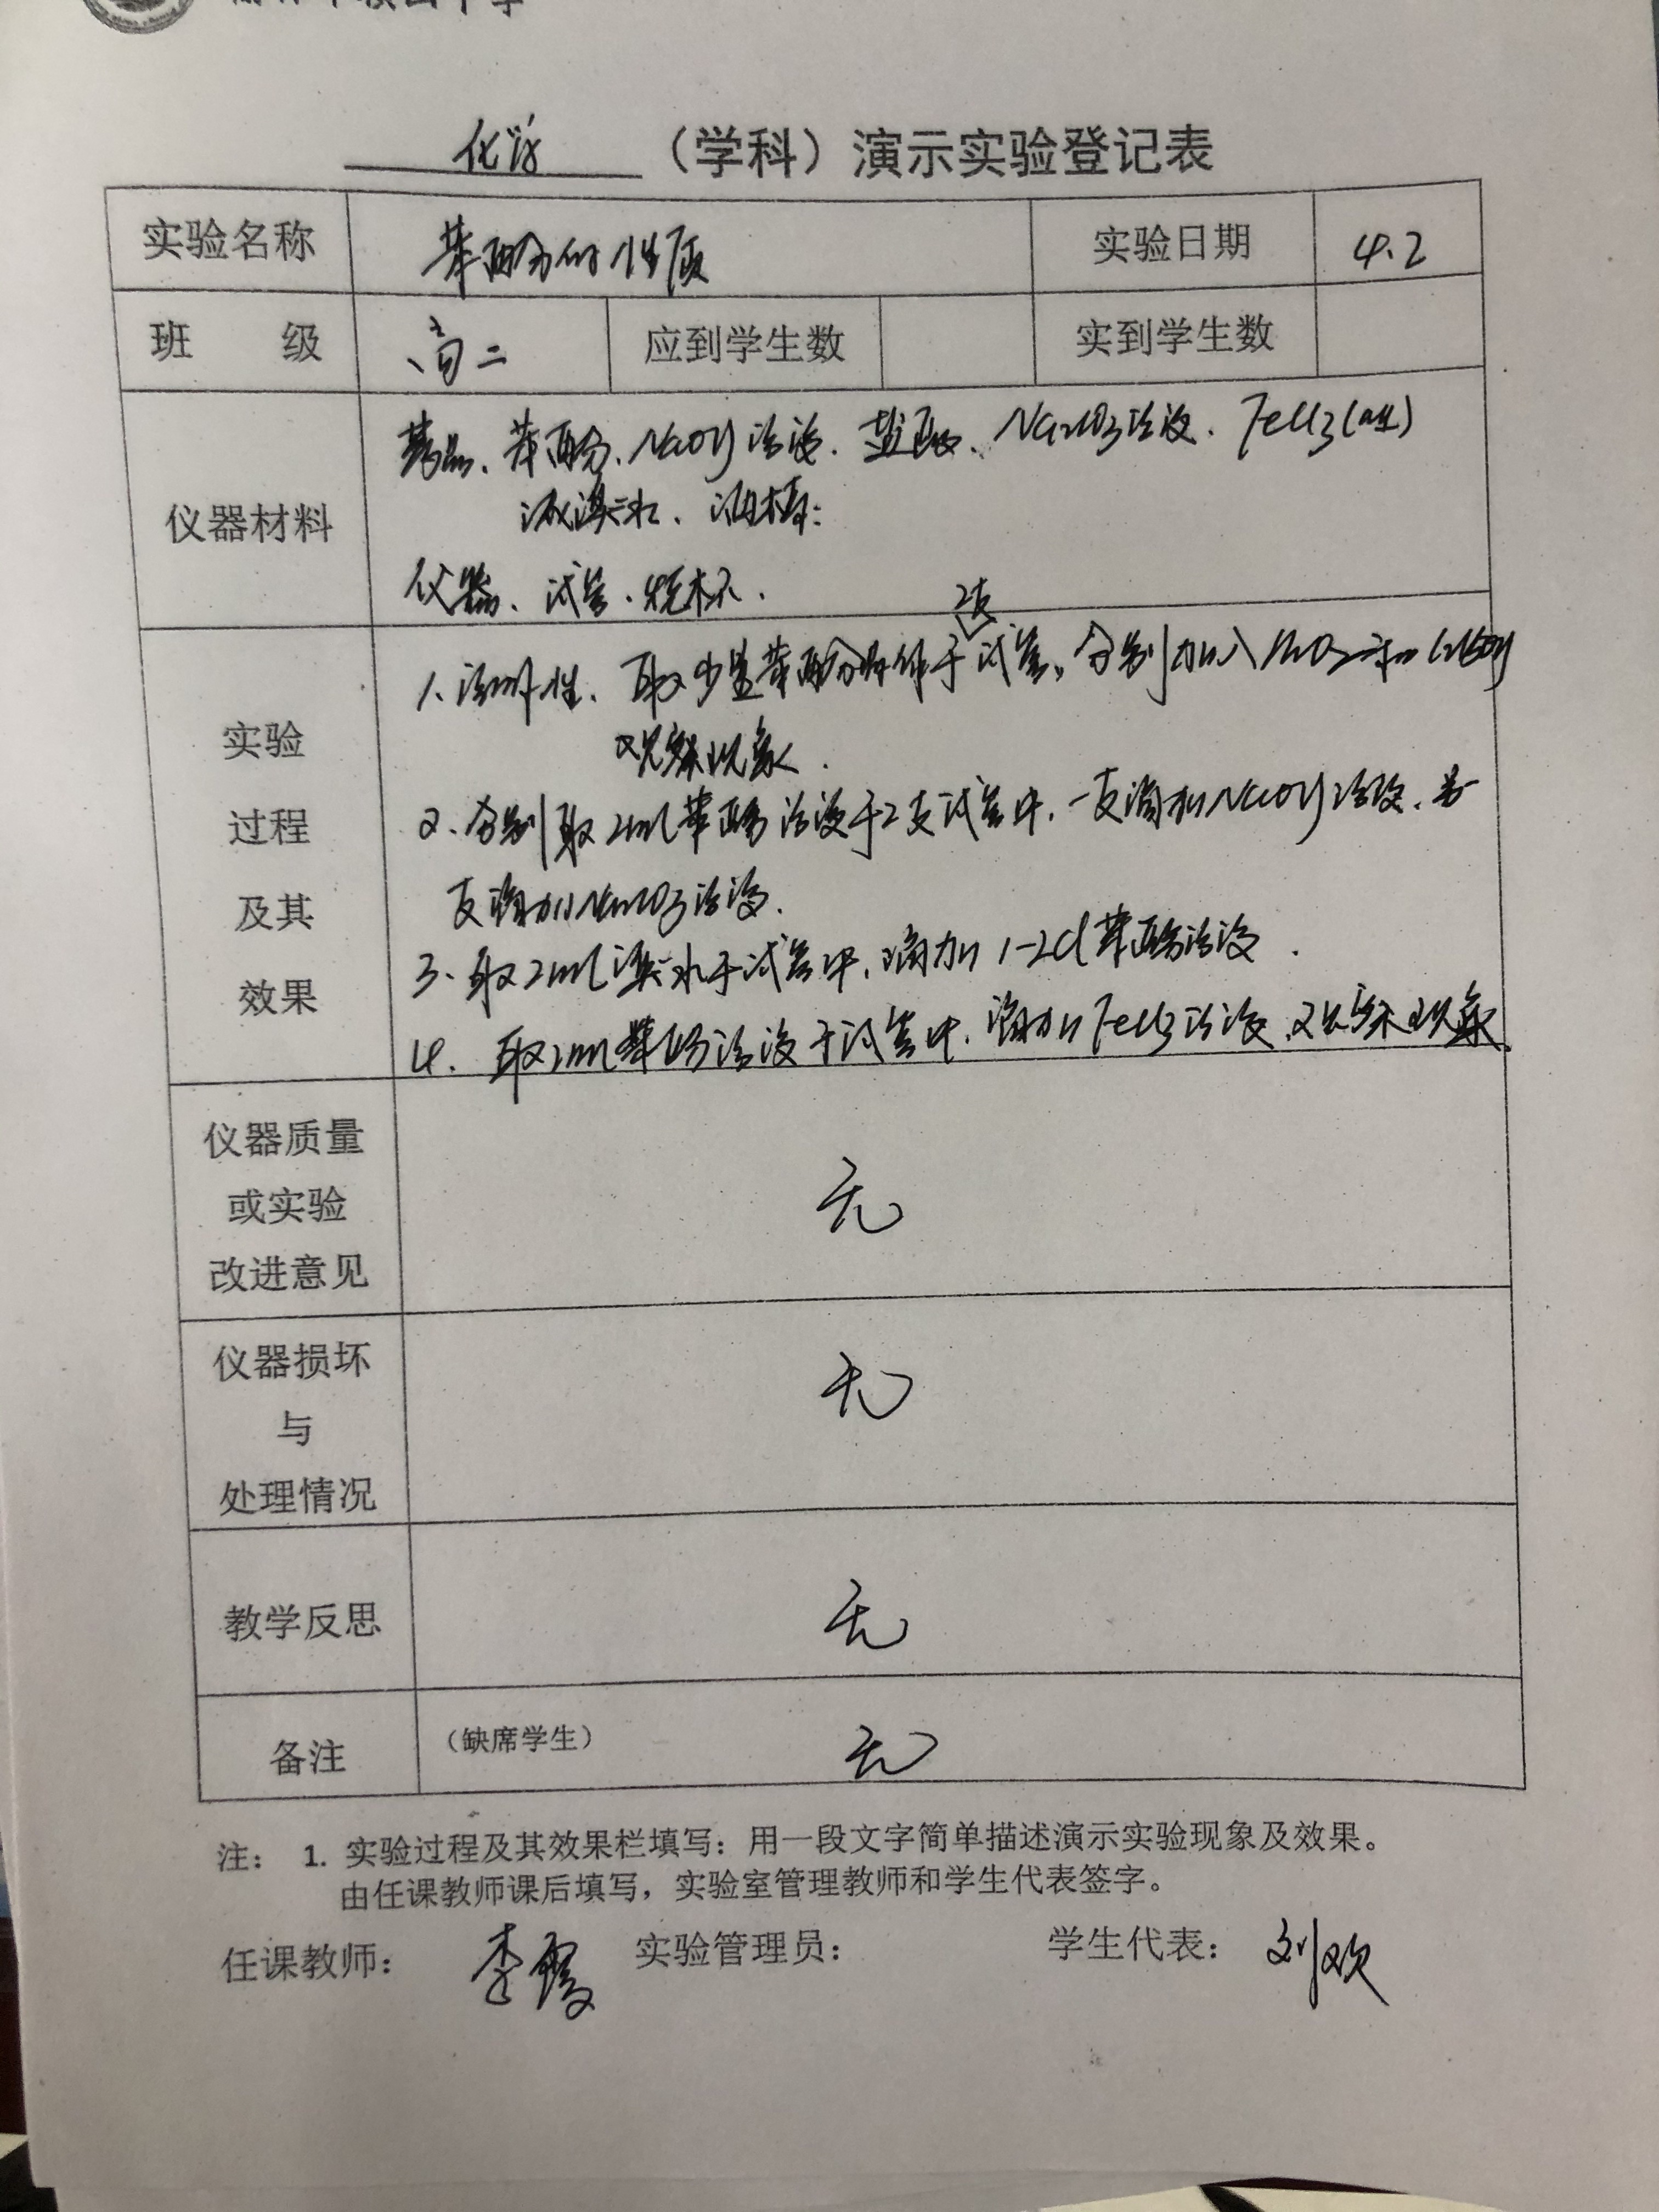 化学 （学科）演示实验登记表
实验名称 苯酚的性质 实验日期 4.2
班 级 高二 应到学生数 实到学生数
仪器材料
药品、苯酚、NaOH溶液、盐酸、Na2CO3溶液、FeCl3(aq)
浓溴水、酒精：
仪器、试管、烧杯、
实验过程及其效果
2支
1、溶解性、取少量苯酚晶体于试管，分别加入H2O 和C2H5OH
观察现象．
2、分别取2ml苯酚溶液于2支试管中，一支滴加NaOH溶液、另一
支滴加Na2CO3溶液．
3、取2ml溴水于试管中，滴加1-2d苯酚溶液．
4．取2ml苯酚溶液于试管中，滴加FeCl3溶液，观察现象．
仪器质量或实验改进意见 无
仪器损坏与处理情况 无
教学反思 无
备注 （缺席学生） 无
注： 1. 实验过程及其效果栏填写：用一段文字简单描述演示实验现象及效果。
由任课教师课后填写，实验室管理教师和学生代表签字。
任课教师： 李霞 实验管理员： 学生代表： 刘欢